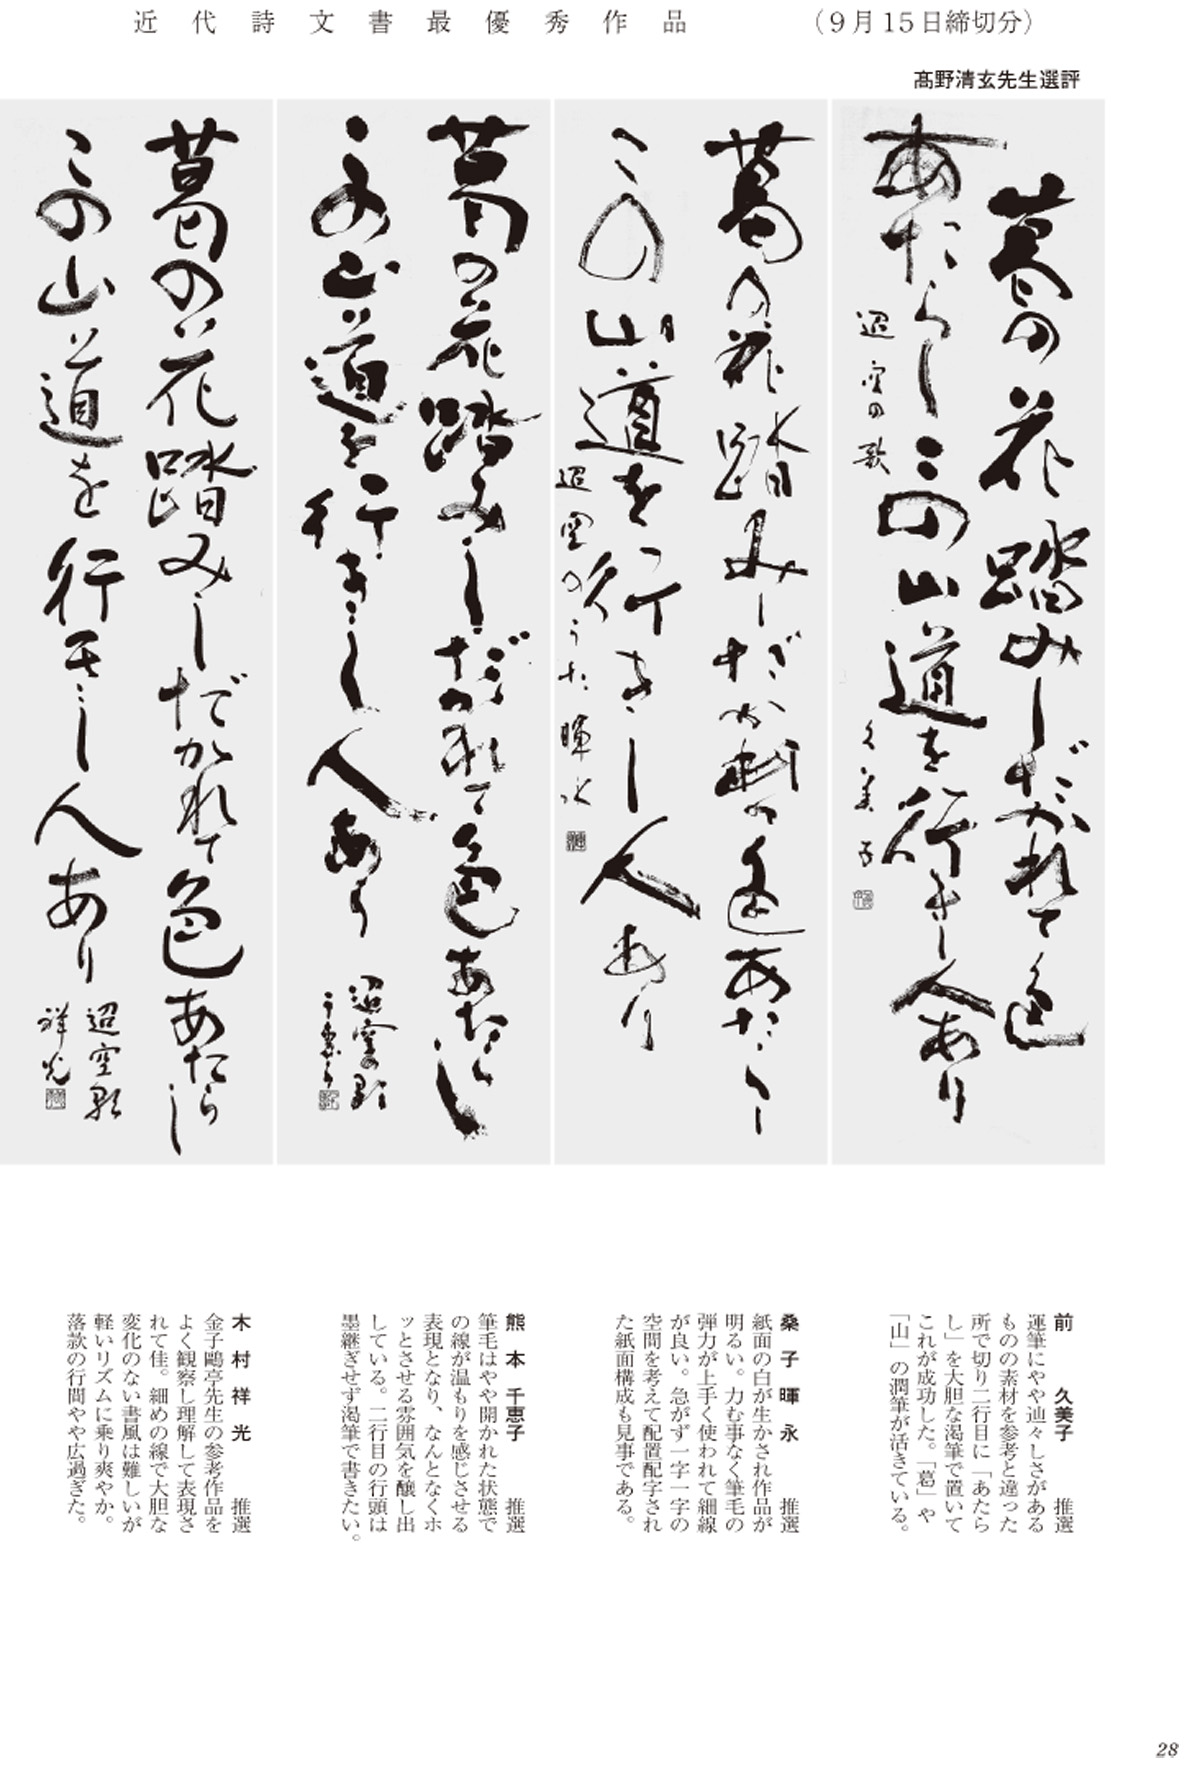 近代詩文書最優秀作品
（9月15日締切分）
髙野清玄先生選評
葛の花踏みしだかれて色
あたらしこの山道を行きし人あり
迢空の歌
久美子
葛の花踏みしだかれて色あたらし
この山道を行きし人あり
迢空のうた 暉永
葛の花踏みしだかれて色あたらし
この山道を行きし人あり
迢空の歌
葛の花踏みしだかれて色あたらし
この山道を行きし人あり
迢空歌
祥光
前 久美子 推選
運筆にやや辿々しさがある
ものの素材を参考と違った
所で切り二行目に「あたら
し」を大胆な渇筆で置いて
これが成功した。「葛」や
「山」の潤筆が活きている。
桑子暉永 推選
紙面の白が生かされ作品が
明るい。力む事なく筆毛の
弾力が上手く使われて細線
が良い。急がず一字一字の
空間を考えて配置配字され
た紙面構成も見事である。
熊本千恵子 推選
筆毛はやや開かれた状態で
の線が温もりを感じさせる
表現となり、なんとなくホ
ッとさせる雰囲気を醸し出
している。二行目の行頭は
墨継ぎせず渇筆で書きたい。
木村祥光 推選
金子鷗亭先生の参考作品を
よく観察し理解して表現さ
れて佳。細めの線で大胆な
変化のない書風は難しいが
軽いリズムに乗り爽やか。
落款の行間やや広過ぎた。
28